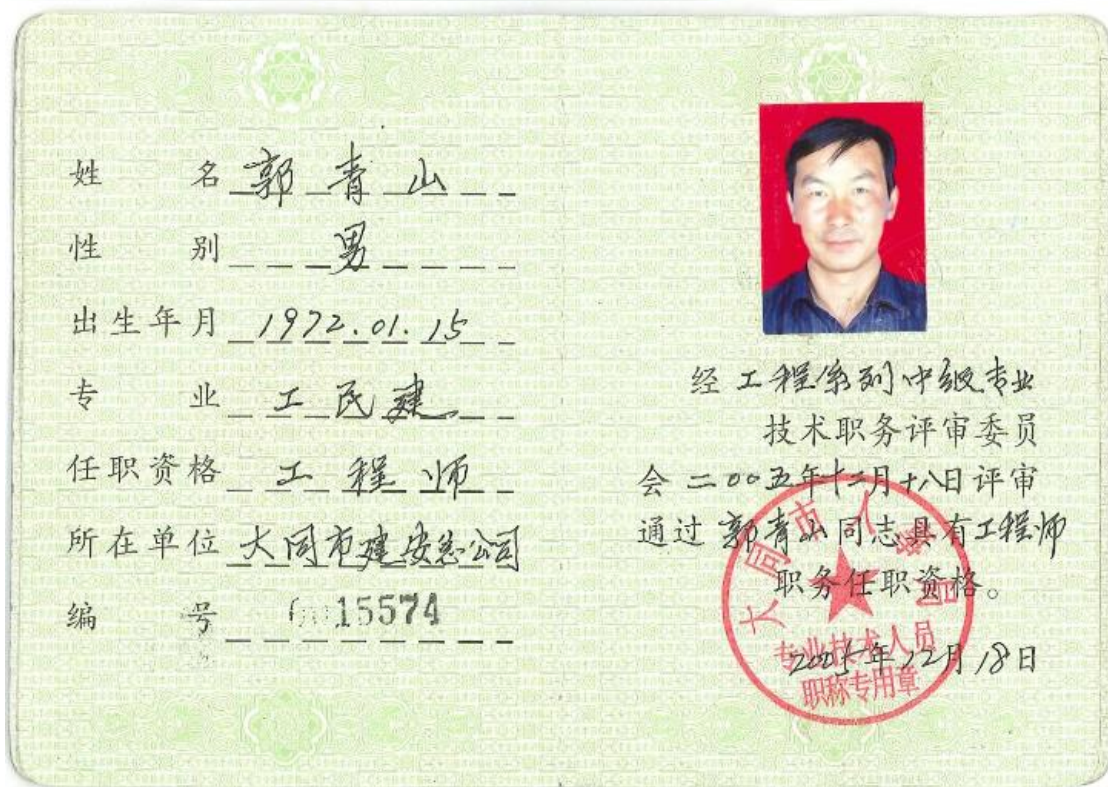 姓名 郭青山
性别 男
出生年月 1972.01.15
专业 工民建
任职资格 工程师
所在单位 大同市建安总公司
编号 15574
经工程系列中级专业
技术职务评审委员
会二〇〇五年十二月十八日评审
通过郭青山同志具有工程师
职务任职资格。
2005年12月18日
大同市人事局
专业技术人员
职称专用章